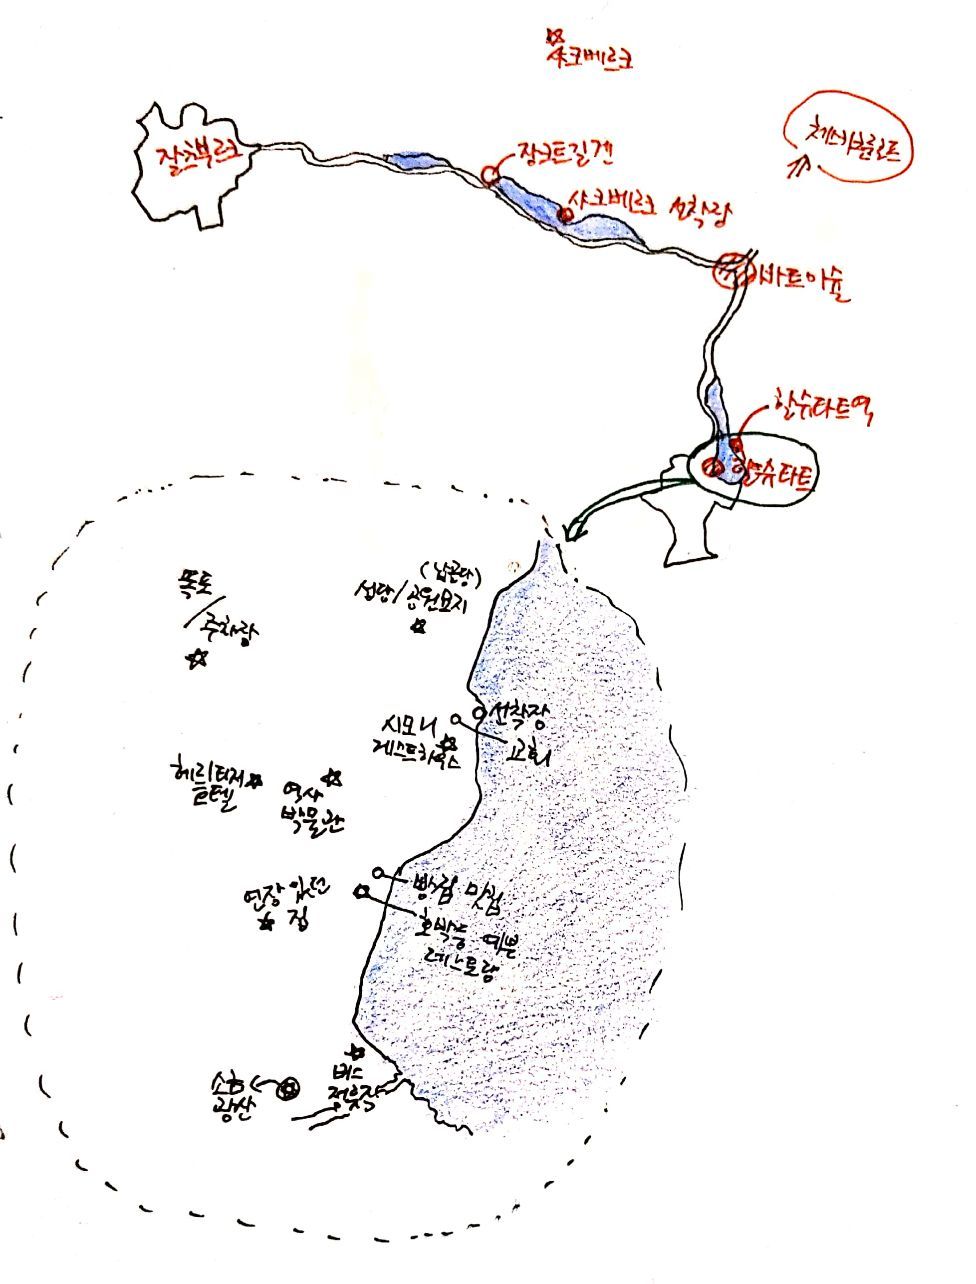 샤크베르크
체스키크롬로프
잘츠부르크
장크트길겐
샤크베르크 선착장
바트이슐
할슈타트역
할슈타트
(납골당)
성당/공원묘지
폭포
주차장
선착장
시모니
게스트하우스
교회
헤리티지
호텔
역사
박물관
빵집 맛집
연장 있던
집
호박등 예쁜
레스토랑
버스
정류장
소금
광산